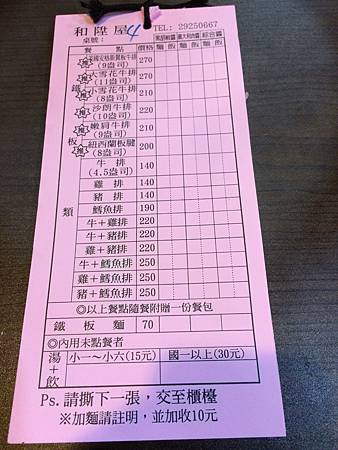 和昇屋 TEL: 29250667
桌號:
餐 點 價格 黑胡椒醬 義大利肉醬 綜合醬
麵 飯 麵 飯 麵 飯
鐵板類
(9盎司) 270
大雪花牛排 (11盎司) 270
小雪花牛排 (8盎司) 210
沙朗牛排 (10盎司) 220
嫩肩牛排 (9盎司) 210
紐西蘭板腱 (8盎司) 200
牛 排 (4.5盎司) 140
雞 排 140
豬 排 140
鱈魚排 190
牛+雞排 220
牛+豬排 220
雞+豬排 220
牛+鱈魚排 250
雞+鱈魚排 250
豬+鱈魚排 250
◎以上餐點隨餐附贈一份餐包
鐵 板 麵 70
◎內用未點餐者
湯+飲 小一~小六(15元) 國一以上(30元)
Ps.請撕下一張，交至櫃檯
※加麵請註明，並加收10元